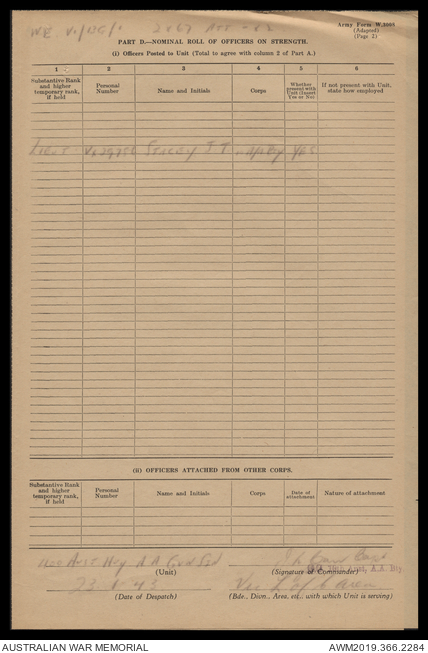 Army Form W.3008
(Adapted)
(Page 2)
PART D.—NOMINAL ROLL OF OFFICERS ON STRENGTH.
(i) Officers Posted to Unit (Total to agree with column 2 of Part A.)
1 2 3 4 5 6
Substantive Rank and higher temporary rank, if held
Personal Number
Name and Initials
Corps
Whether present with Unit (Insert Yes or No)
If not present with Unit, state how employed
Lieut Stacey J T Yes
(ii) OFFICERS ATTACHED FROM OTHER CORPS.
Substantive Rank and higher temporary rank, if held
Personal Number
Name and Initials
Corps
Date of attachment
Nature of attachment
Aust Hvy A A Gun Stn Capt
(Unit) (Signature of Commander)
L of C Area
(Date of Despatch) (Bde., Divn., Area, etc., with which Unit is serving)
AUSTRALIAN WAR MEMORIAL AWM2019.366.2284